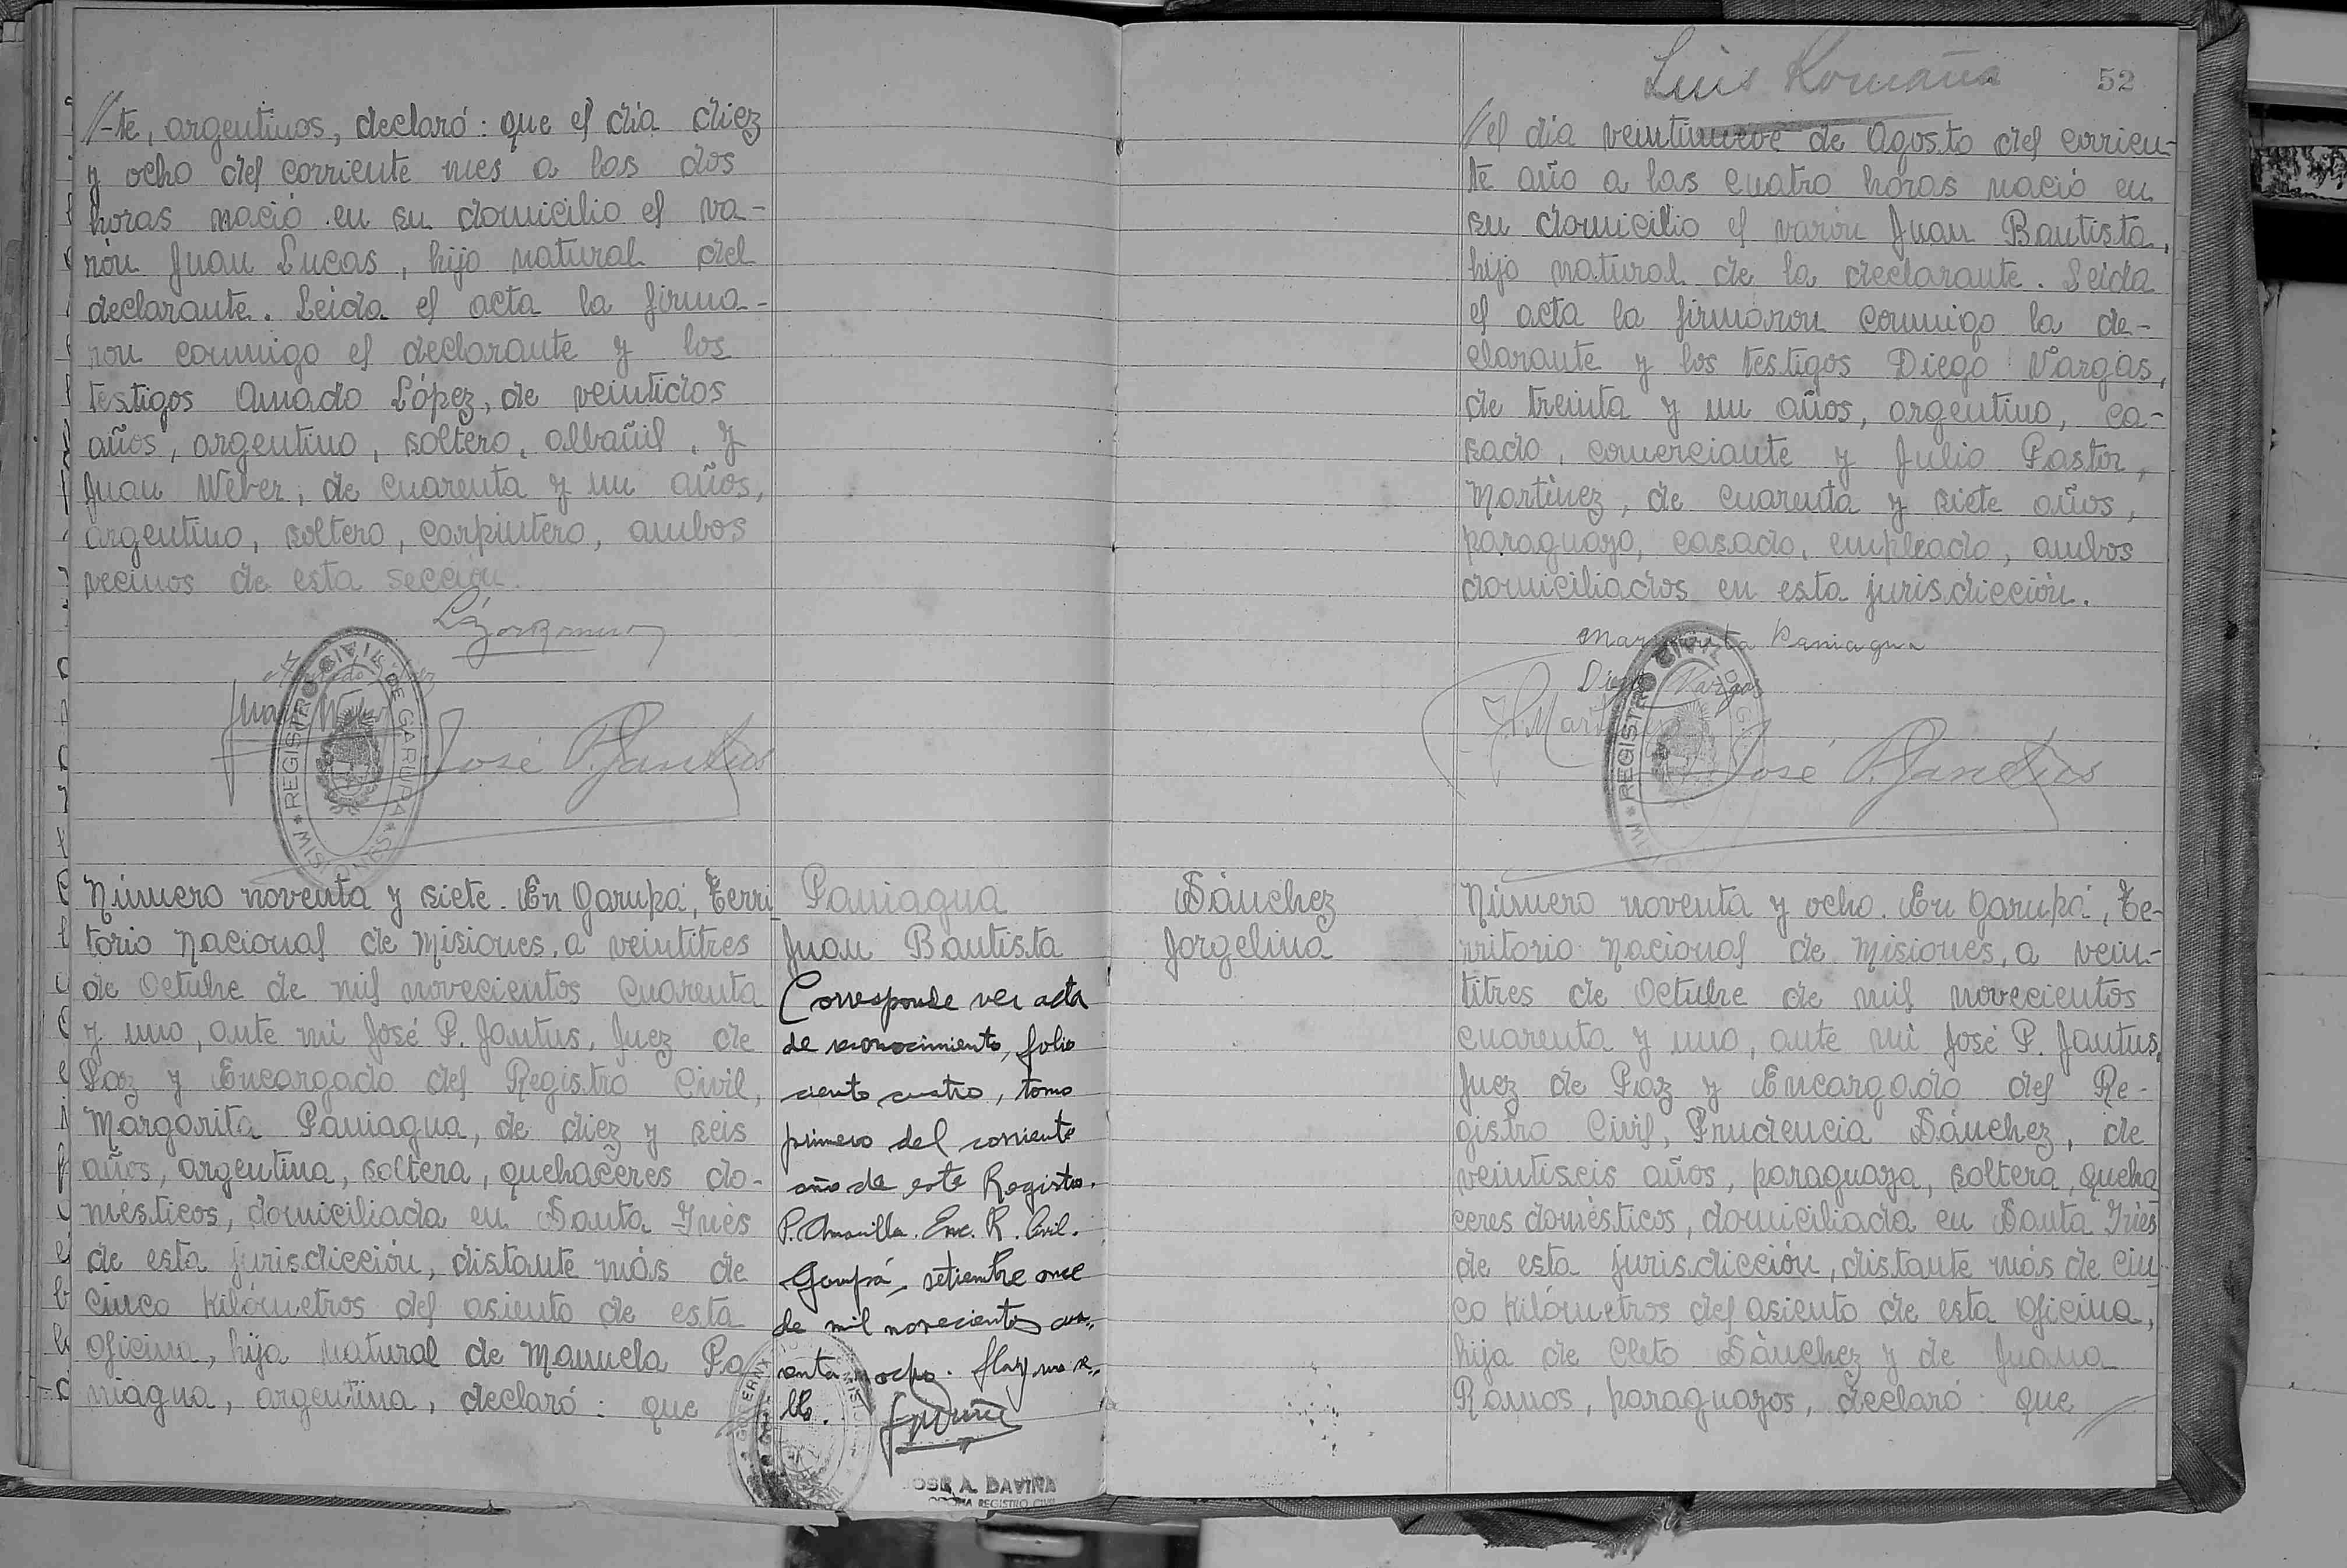 //-te, argentinos, declaró: que el día diez
y ocho del corriente mes a las dos
horas nació en su domicilio el va-
rón Juan Lucas, hijo natural del
declarante. Leida el acta la firma-
ron conmigo el declarante y los
testigos Amado López, de veintidos
años, argentino, soltero, albañil, y
Juan Weber, de cuarenta y un años,
argentino, soltero, carpintero, ambos
vecinos de esta sección.
Juan
José P. Jantus
REGISTRO CIVIL DE GARUPA
Número noventa y siete. En Garupá, Terri-
torio Nacional de Misiones, a veintitres
de Octubre de mil novecientos cuarenta
y uno, ante mi José P. Jantus, Juez de
Paz y Encargado del Registro Civil,
Margarita Paniagua, de diez y seis
años, argentina, soltera, quehaceres do-
mésticos, domiciliada en Santa Inés
de esta jurisdicción, distante más de
cinco kilómetros del asiento de esta
Oficina, hija natural de Manuela Pa
niagua, argentina, declaró: que
Paniagua
Juan Bautista
Corresponde ver acta
de reconocimiento, folio
ciento cuatro, tomo
primero del corriente
año de este Registro.
P. Amarilla. Enc. R. Civil.
Garupá, setiembre once
de mil novecientos cua-
renta y ocho. Hay un se-
llo.
JOSE A. DAVIÑA
REGISTRO CIVIL
Luis Romaña
52
//el día veintinueve de Agosto del corrien-
te año a las cuatro horas nació en
su domicilio el varón Juan Bautista,
hijo natural de la declarante. Leida
el acta la firmaron conmigo la de-
clarante y los testigos Diego Vargas,
de treinta y un años, argentino, ca-
sado, comerciante y Julio Pastor,
Martínez, de cuarenta y siete años,
paraguayo, casado, empleado, ambos
domiciliados en esta jurisdicción.
Margarita Paniagua
Diego Vargas
José P. Jantus
REGISTRO CIVIL
Sánchez
Jorgelina
Número noventa y ocho. En Garupá, Te-
rritorio Nacional de Misiones, a vein-
titres de Octubre de mil novecientos
cuarenta y uno, ante mi José P. Jantus,
Juez de Paz y Encargado del Re-
gistro Civil, Prudencia Sánchez, de
veintiseis años, paraguaya, soltera, queha
ceres domésticos, domiciliada en Santa Inés
de esta jurisdicción, distante más de cin
co kilómetros del asiento de esta Oficina,
hija de Cleto Sánchez y de Juana
Ramos, paraguayos, declaró: que //